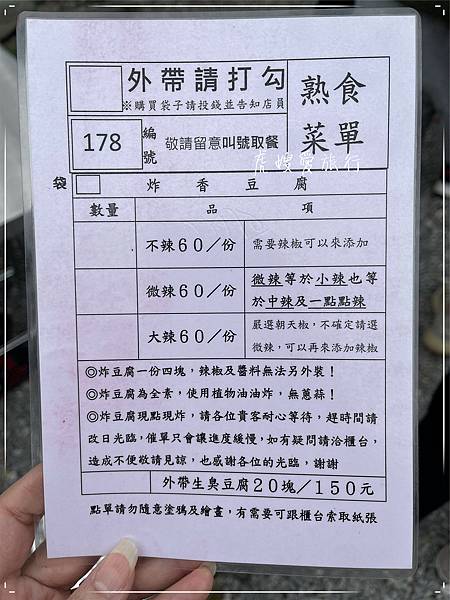 外帶請打勾
※購買袋子請投錢並告知店員
熟食
菜單
178
編號
敬請留意叫號取餐
虎嫂愛旅行
袋
炸香豆腐
數量 品項
不辣60/份 需要辣椒可以來添加
微辣60/份 微辣等於小辣也等
於中辣及一點點辣
大辣60/份 嚴選朝天椒，不確定請選
微辣，可以再來添加辣椒
◎炸豆腐一份四塊，辣椒及醬料無法另外裝！
◎炸豆腐為全素，使用植物油油炸，無蔥蒜！
◎炸豆腐現點現炸，請各位貴客耐心等待，趕時間請
改日光臨，催單只會讓進度緩慢，如有疑問請洽櫃台，
造成不便敬請見諒，也感謝各位的光臨，謝謝
外帶生臭豆腐20塊/150元
點單請勿隨意塗鴉及繪畫，有需要可跟櫃台索取紙張